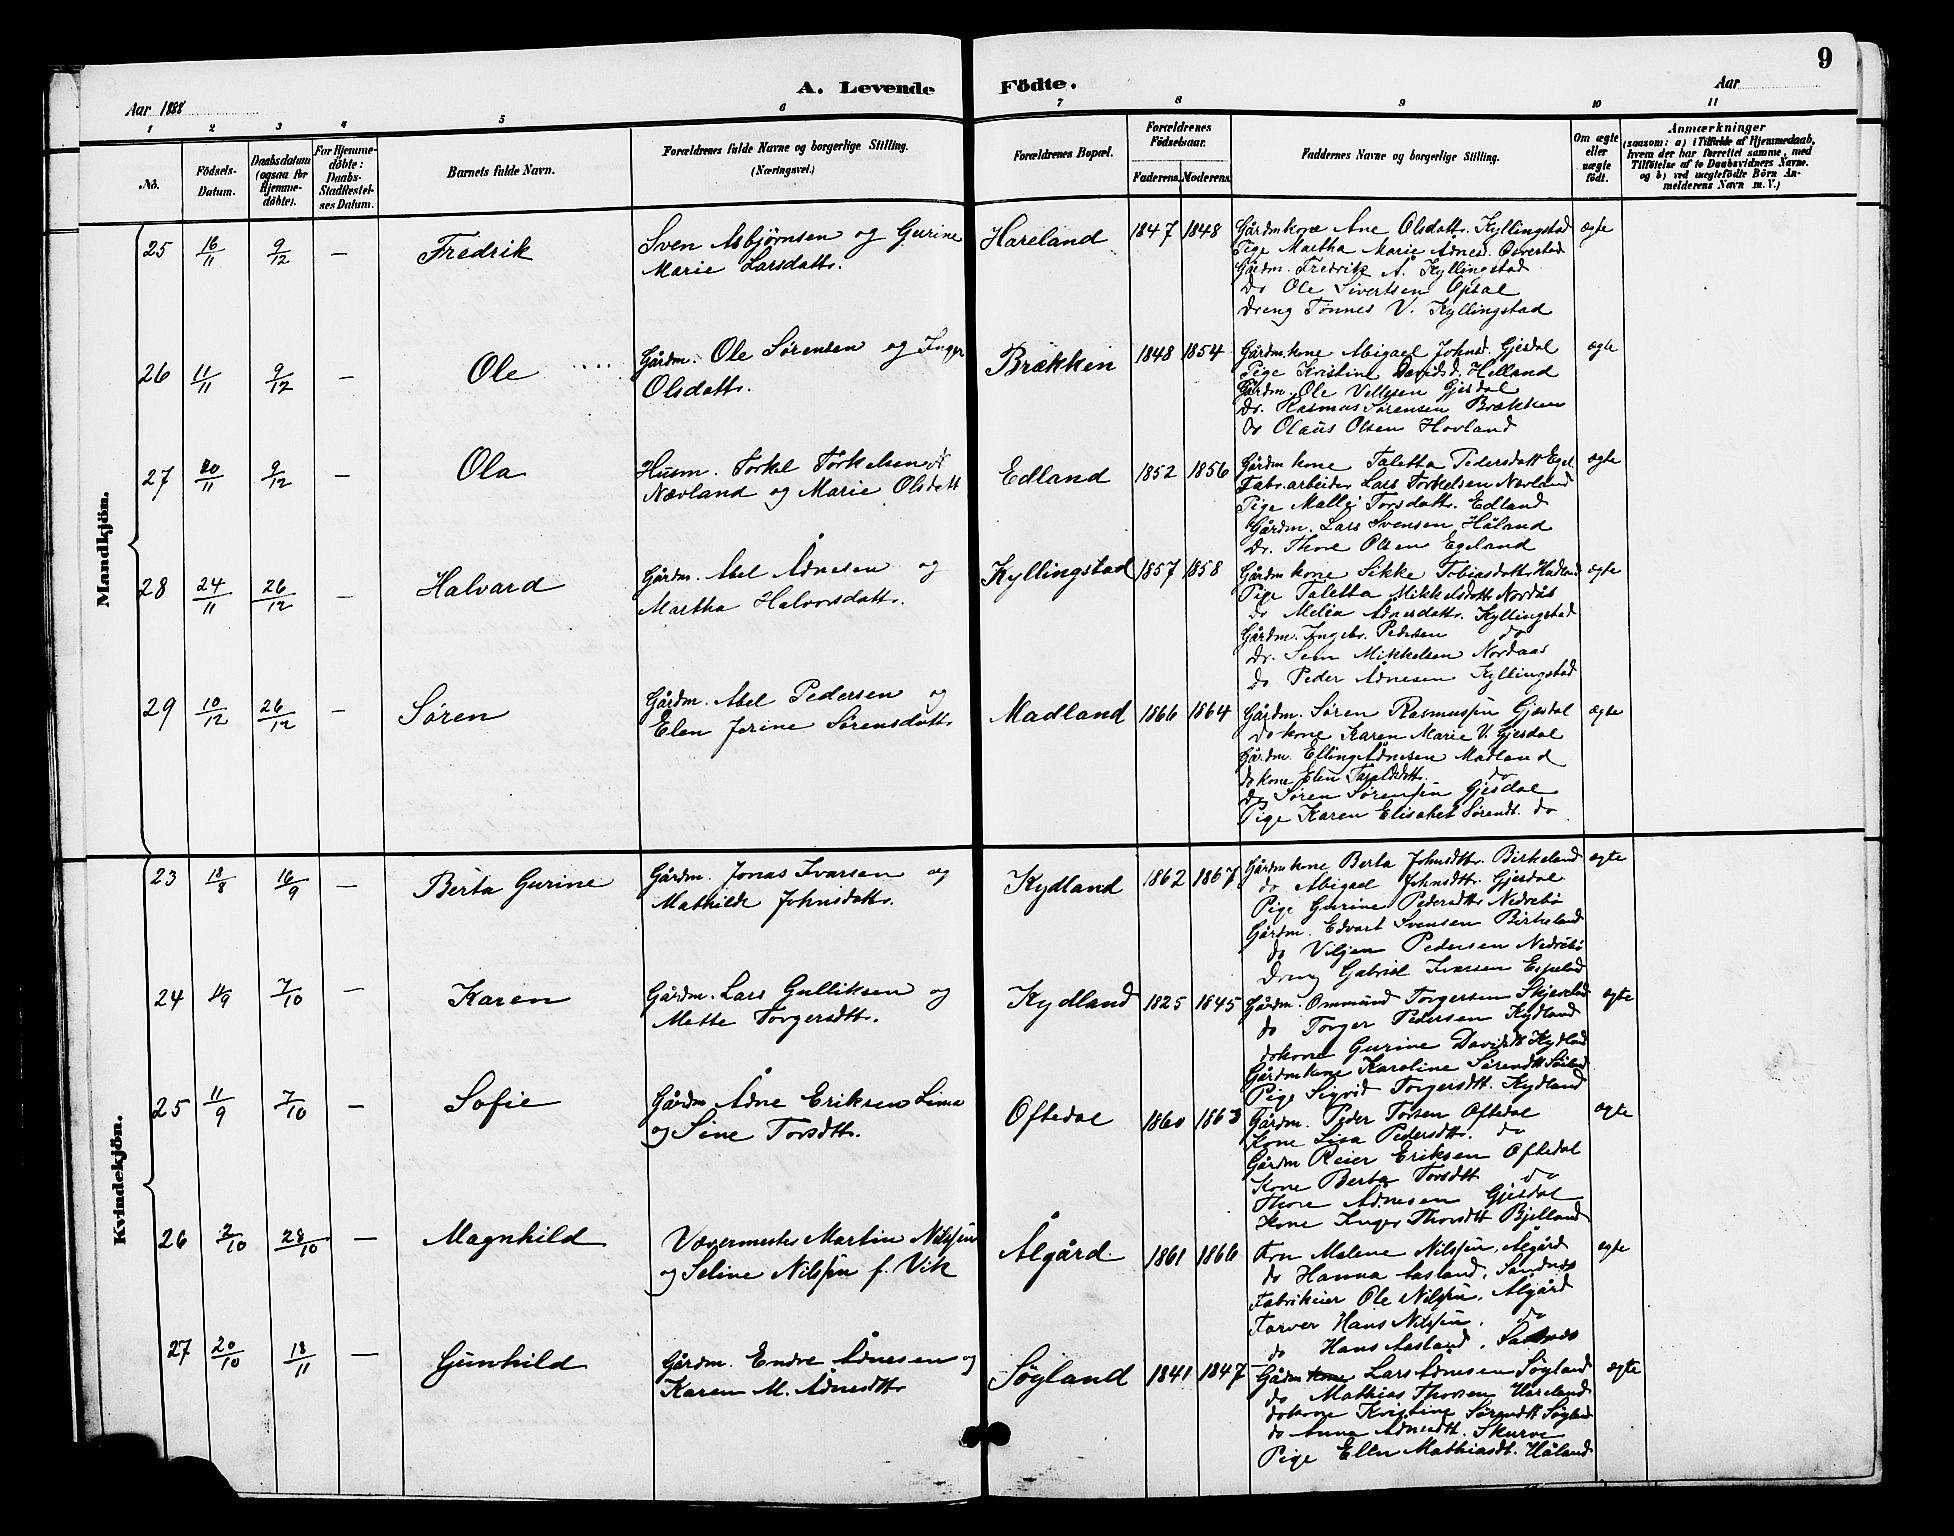 9
A. Levende Födte.
Aar 1888
Aar
1 2 3 4 5 6 7 8 9 10 11
No.
Födsels-Datum.
Daabsdatum (ogsaa for Hjemmedöbte).
For Hjemmedöbte: Daabs-Stadfæstelses Datum.
Barnets fulde Navn.
Forældrenes fulde Navne og borgerlige Stilling. (Næringsvei.)
Forældrenes Bopæl.
Forældrenes Födselsaar.
Faderens. Moderens.
Faddernes Navne og borgerlige Stilling.
Om ægte eller uægte födt.
Anmærkninger
(saasom: a) i Tilfælde af Hjemmedaab, hvem der har forrettet samme, med Tilföielse af to Daabsvidners Navne. og b) ved uægtefödte Börn Anmelderens Navn m. V.)
Mandkjön.
25 16/11 9/12 — Fredrik
Sven Asbjørnsen og Gurine
Marie Larsdattr.
Hareland 1847 1848
Gårdmkone Ane Olsdattr. Kyllingstad
Pige Martha Marie Adnesd.
Gårdm. Fredrik A. Kyllingstad
do Ole Sivertsen Opsal
Dreng Tønnes V. Kyllingstad
ægte
26 11/11 9/12 — Ole
Gårdm. Ole Sørensen og Inger
Olsdattr.
Brækken 1848 1854
Gårdmkone Abigael Johnsd. Gjesdal
Pige Kristine Davidsd. Helland
Gårdm. Ole Villesen Gjesdal
do. Rasmus Sørensen Brækken
do Olaus Olsen Hovland
ægte
27 20/11 9/12 — Ola
Husm. Torkel Torkelsen
Nævland og Marie Olsdatt
Edland 1852 1856
Gårdmkone Taletta Pedersdatt Egel.
Fabr.arbeider Lars Torkelsen Nævland
Pige Malli Torsdattr. Edland
Gårdm. Lars Svensen Håland
do. Thore Olsen Egeland
ægte
28 24/11 26/12 — Halvard
Gårdm. Abel Ådnesen og
Martha Halvorsdattr.
Kyllingstad 1857 1858
Gårdmkone Sikke Tobiasdattr. Madland
Pige Taletta Mikkelsdatt Nordås
do Melia Adnesdattr. Kyllingstad
Gårdm. Ingebr. Pedersen do
do. Sem Mikkelsen Nordaas
do Peder Adnesen Kyllingstad
ægte
29 10/12 26/12 — Søren
Gårdm. Abel Pedersen og
Elen Jorine Sørensdattr.
Madland 1866 1864
Gårdm. Søren Rasmussen Gjesdal
do kone Karen Marie V. Gjesdal
Gårdm. Elling Ådnesen Madland
do kone Elen Taraldsdtt. do
do Søren Sørensen Gjesdal
Pige Karen Elisabet Sørendt. do
ægte
Kvindekjön.
23 18/8 16/9 — Berta Gurine
Gårdm. Jonas Ivarsen og
Mathilde Johnsdattr.
Kydland 1862 1867
Gårdmkone Berta Johnsdttr. Birkeland
do Abigael Johnsdttr. Gjesdal
Pige Gurine Pedersdttr. Nedrebø
Gårdm. Edvart Svensen Birkeland
do Viljen Pedersen Nedrebø
Dreng Gabriel Ivarsen Espeland
ægte
24 1/9 7/10 — Karen
Gårdm. Lars Gulliksen og
Mette Torgersdtt.
Kydland 1825 1845
Gårdm. Ommund Torgersen Skjæveland
do Torger Pedersen Kydland
do kone Gurine Davidsdtt Kydland
Gårdmkone Karoline Sørendtt Søiland
Pige Sigvid Torgersdtt. Kydland
ægte
25 11/9 7/10 — Sofie
Gårdm Ådne Eriksen Lima
og Sine Torsdtt.
Oftedal 1860 1863
Gårdm. Peder Torsen Oftedal
Kone Lisa Pedersdtt. do
Gårdm Reier Eriksen Oftedal
Kone Berta Torsdtt do
Thore Adnesen Gjesdal
Kone Inger Thorsdtt Bjelland
ægte
26 2/10 28/10 — Magnhild
Vævermester Martin Nilssen
og Seline Nilssen f. Vik
Ålgård. 1861 1866
Fru Malene Nilssen, Ålgård
do Hanna Aasland, Sandnes
Fabrikeier Ole Nilssen, Algård
Farver Hans Nilssen, do
do Hans Aasland, Sandnes
ægte
27 20/10 18/11 — Gunhild
Gårdm. Endre Ådnesen og
Karen M. Ådnesdtt.
Søyland 1841 1847
Gårdm Lars Adnesen Søyland
do Mathias Thorsen Håreland
do kone Kristine Sørendtt Søyland
do Anna Adnesdtt. Skurve
Pige Ellen Mathiasdt. Håland
ægte